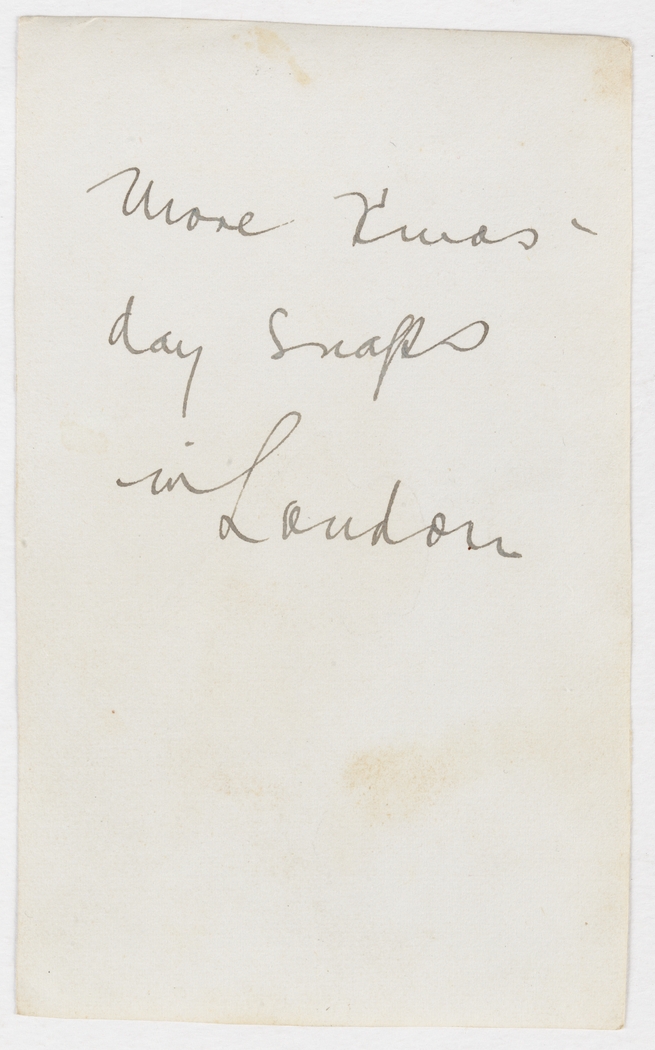 More Xmas-
day snaps
in London